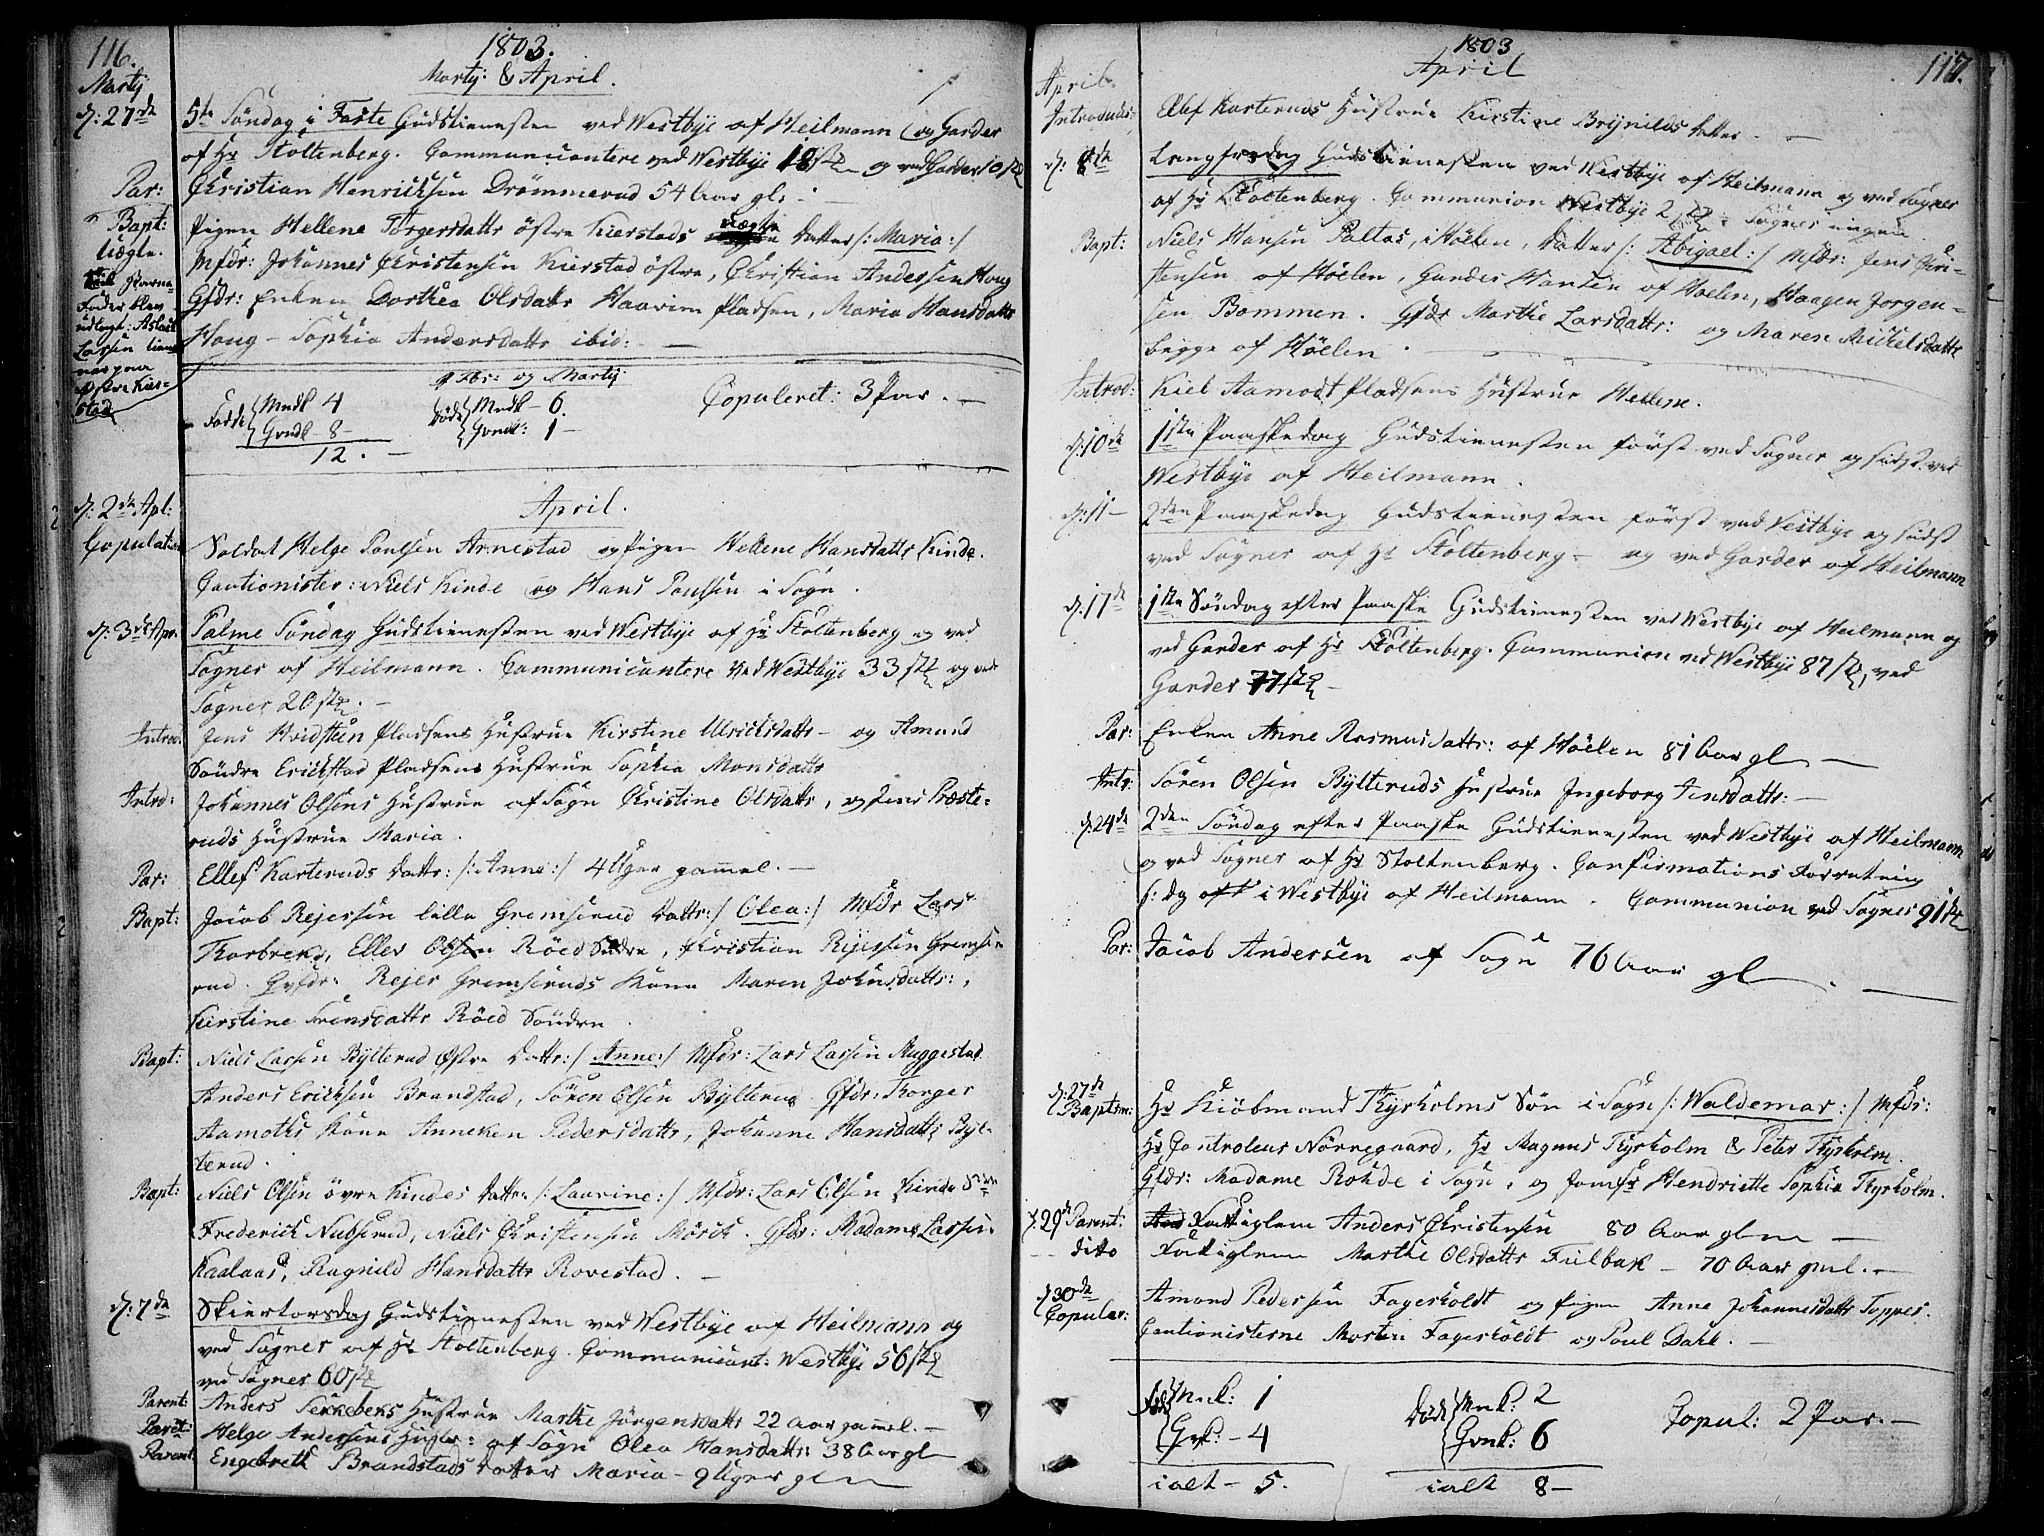 116.
1803.
Marty: & April.
Marty
d: 27de 5te Söndag i Faste Gudstienesten ved Westbye af Heilmann og Garder
af Hr Stoltenberg. Communicantere ved Westbye 18 stk og ved Garder 10 stk
Par: Christian Henricksen Drömmerud 54 Aar gl:
Bapt: Pigen Hellene Torgersdattr östre Kierstads uægte Datter /: Maria :/
uægte. Mfdr: Johannes Christensen Kierstad östre, Christian Andersen Haug
Gfdr: Enken Dorthea Olsdattr Haavim Pladsen, Maria Hansdattr
Haug - Sophia Andersdattr ibid: -
Barne-
Fader blev
udlagt: Aslack
Larsen tiene-
ner paa
Östre Kier-
stad
Fbr: og Marty
Födte Mndk 4
Qvndk 8
12.
Döde Mndk - 6.
Qvndk: 1 -
Copuleret: 3 Par. -
April.
d: 2de Apl:
Copulation Soldat Helge Poulsen Arnestad og Pigen Hellene Hansdattr Kinde.
Cautionister: Niels Kinde og Hans Poulsen i Sogn.
d: 3de Apr. Palme Söndag Gudstienesten ved Westbye af Hr Stoltenberg og ved
Sogner af Heilmann. Communicantere ved Westbye 33 stk og ved
Sogner 26 stk. -
Introd: Jens Hvidsteen Pladsens Hustrue Kirstine Ulricksdattr - og Amund
Söndre Erickstad Pladsens Hustrue Sophia Monsdattr
Introd: Johannes Olsens Hustrue af Sogn Christine Olsdattr, og Jens Præste-
ruds Hustrue Maria.
Par: Ellef Karteruds Dattr: /: Anne :/ 4 Uger gamel. -
Bapt: Jacob Rejersen lille Gremserud Dattr: /: Olea :/ Mfdr Lars
Thorbrend, Ellev Olsen Röed Sødre, Christian Rejersen Gremse-
rud. Qvfdr: Rejer Gremseruds Kone Maren Johnsdattr:,
Kirstine Svensdattr Röed Söndre.
Bapt: Niels Larsen Bÿlterud Östre Dattr: /: Anne :/ Mfdr: Lars Larsen Ruggestad
Anders Ericksen Brandstad, Sören Olsen Bÿlterud. Gfdr: Thorger
Aamoths Kone Anneken Pedersdattr, Johanne Hansdattr Bÿl-
terud.
Bapt: Niels Olsen övre Kindes Dattr /: Laurine :/ Mfdr: Lars Olsen Kinde
Frederick Nubserud, Niels Christensen Mörck. Gfdr: Madame Larsen
Kaalaas, Ragnild Hansdattr Rovestad. -
d: 7de Skiertorsdag Gudstienesten ved Westbye af Heilmann og
ved Sogner af Hr Stoltenberg. Communicant: Westbye 56 stk
ved Sogner 60 stk
Parent: Anders Hustrue Marthe Jörgensdattr 22 Aar gamel. -
Parent: Helge Andersens Hustr: af Sogn Olea Hansdattr: 38 Aar gl
Parent: Engebreth Brandstads Datter Maria - 9 Uger glm
1803
April
117.
April.
Introduct: Ellef Karteruds Hustrue Kirstine Brÿnilds datter. -
d: 8de Langfredag Gudstienesten ved Westbye af Heilmann og ved Sogner
af Hr Stoltenberg. Communion Westbye 2 stk Sogner ingen
Bapt: Niels Hansen Paltas, i Höelen, Datter /: Abigael :/ Mfdr: Jens
Hansen af Höelen, Gunder Hansen af Höelen, Haagen Jorgen-
sen Bommen. Gfdr Marthe Larsdattr: og Maren Michelsdattr
begge af Höelen.
Introd: Kield Aamodt Pladsens Hustrue Hellene.
d: 10de 1ste Paaskedag Gudstienesten först ved Sogner og sidst ved
Westbye af Heilmann.
d: 11 - 2den Paaskedag Gudstienesten först ved Vestbye og sidst
ved Sogner af Hr Stoltenberg - og ved Garder af Heilmann
d: 17de 1ste Söndag efter Paaske Gudstienesten ved Westbye af Heilmann og
ved Garder af Hr Stoltenberg. Communion ved Westbye 87 stk, ved
Garder 77 stk -
Par: Enken Anne Rasmusdattr: af Höelen 81 Aar gl -
Intr: Sören Olsen Bÿlteruds Hustrue Ingeborg Jensdattr: -
d: 24de 2den Söndag efter Paaske Gudstienesten ved Westbye af Heilmann
og ved Sogner af Hr Stoltenberg. Confirmations Forretning
s: Dg i Westbye af Heilmann. Communion ved Sogner 91 stk
Par: Jacob Andersen af Sogn 76 Aar gl. -
d: 27de
Baptism: Hr Kiöbmand Thyrholms Sön i Sogn /: Waldemar :/ Mfdr:
Hr Controleur Nörregaard, Hr Magnus Tÿrholm & Peter Thÿrholm.
Gfdr: Madame Rohde i Sogn, og Jomfr Henriette Sophia Tÿrholm.
d: 29de Parent: Fattiglem Anders Christensen 80 Aar glm -
ditto Fattiglem Marthe Olsdattr Fulbak - 70 Aar gml. -
d 30de
Copular: Amond Pedersen Fagerholdt og Pigen Anne Johannesdattr Toppes.
Cautionisterne Morten Fagerholdt og Poul Dahl. -
Föd: Mnk: 1
Qvk: - 4
ialt - 5.
Döde Mnk: 2
Qvnk: 6
ialt 8 -
Copul: 2 Par. -